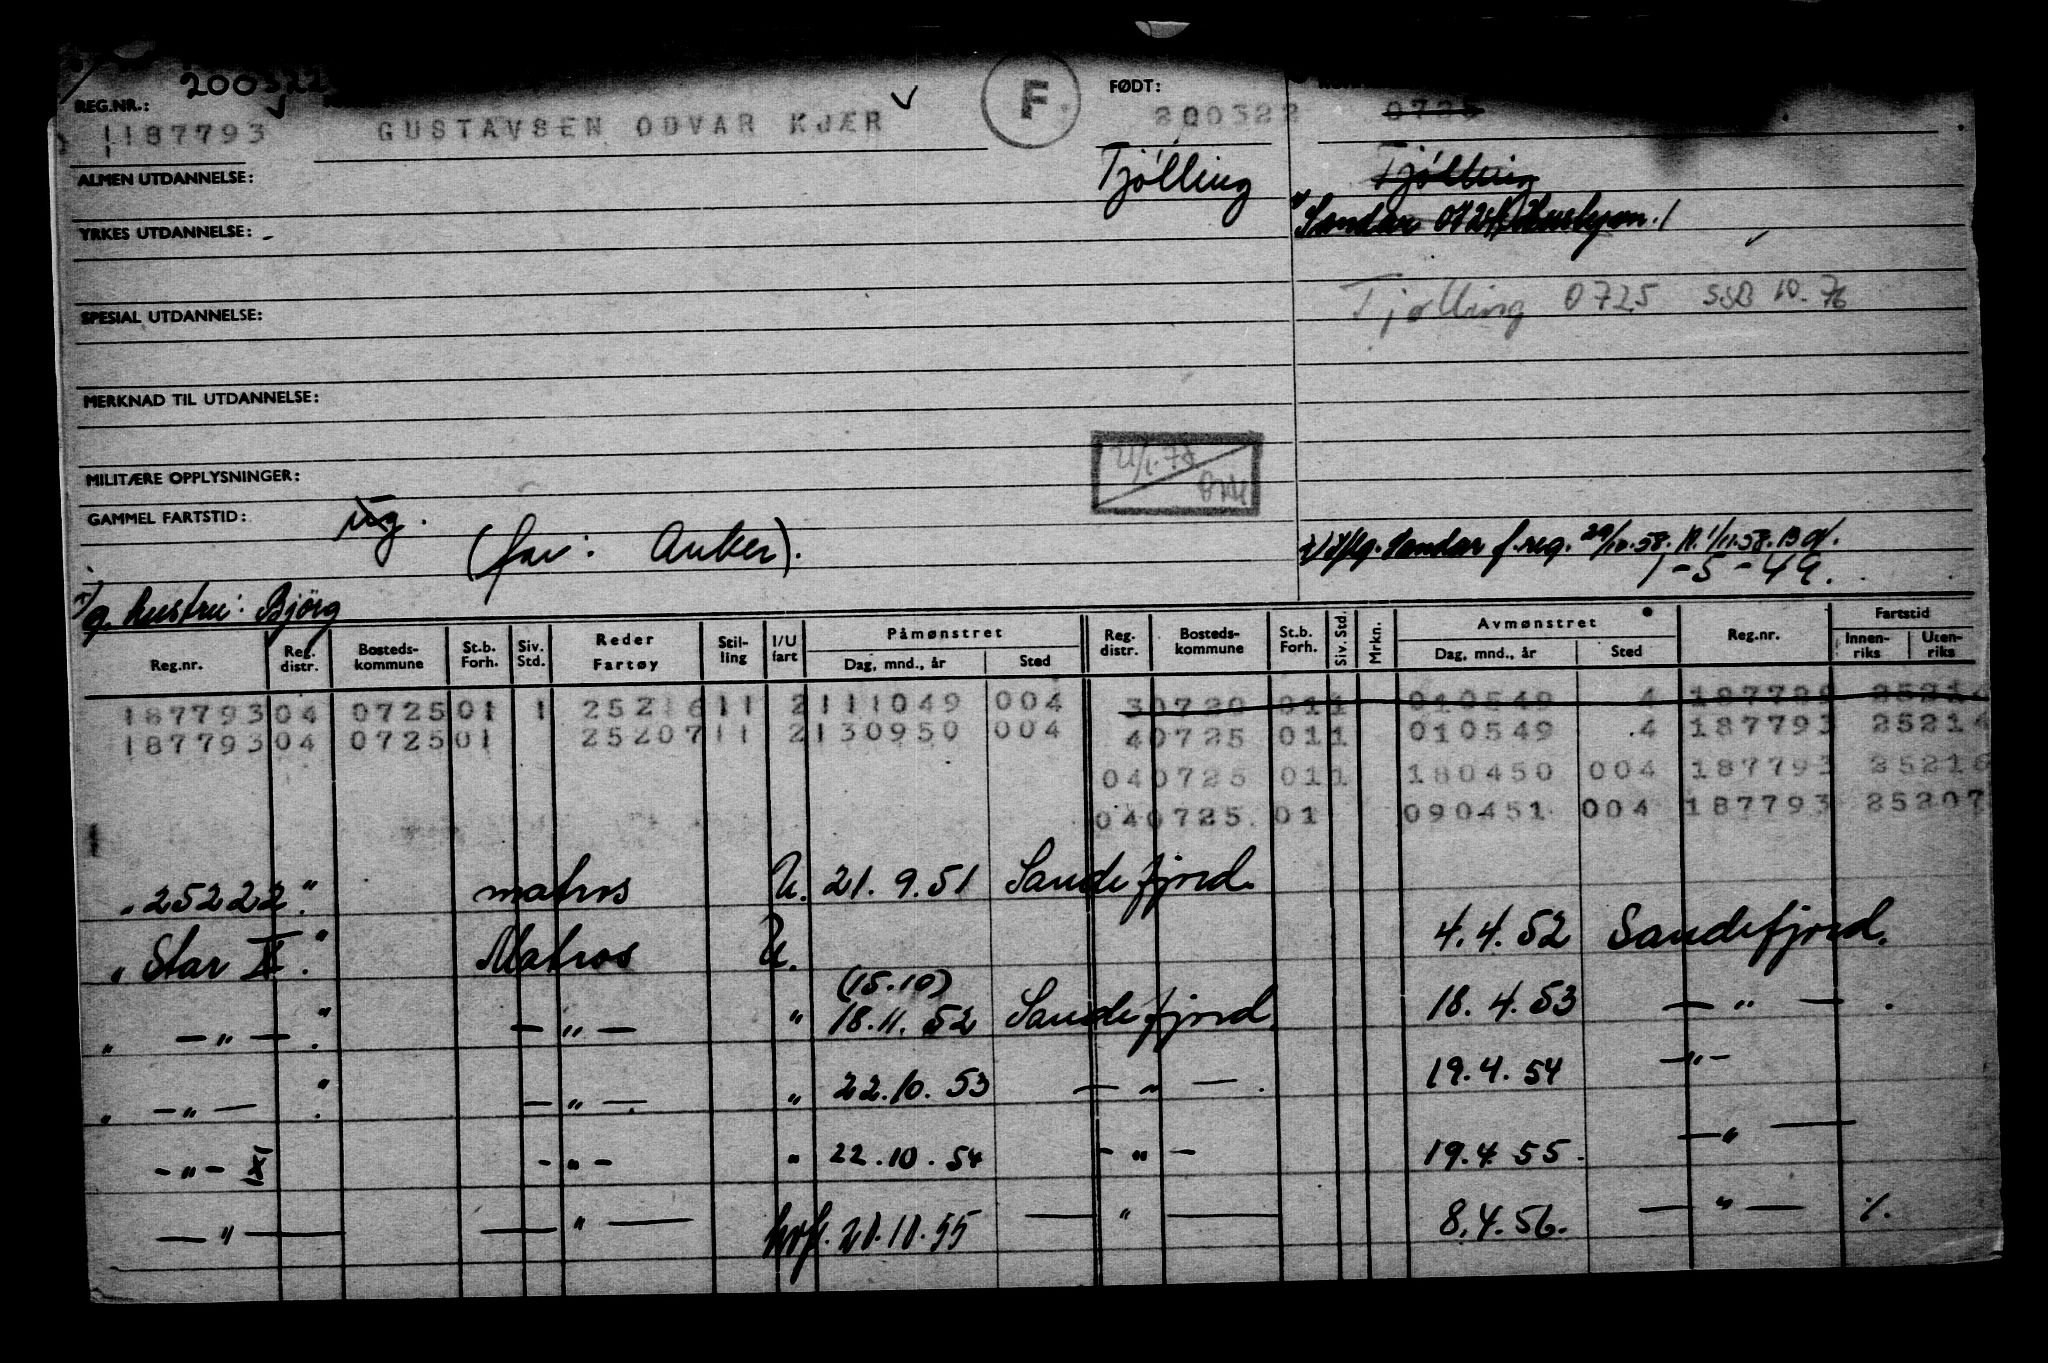 200322
REG.NR.:
FØDT:
1187793 GUSTAVSEN ODVAR KJÆR F 200322 0725
ALMEN UTDANNELSE:
Tjølling Tjølling
YRKES UTDANNELSE:
Sandar
SPESIAL UTDANNELSE:
Tjølling 0725 SSB 10.76
MERKNAD TIL UTDANNELSE:
MILITÆRE OPPLYSNINGER:
GAMMEL FARTSTID: ug.
(far: Anker).
Sandar f.reg. 29/10.58.
1-5-49.
hustru: Bjørg
Reg.nr. Reg. distr. Bosteds-kommune St.b. Forh. Siv. Std. Reder Fartøy Stil-ling I/U fart Påmønstret Dag, mnd., år Sted Reg. distr. Bosteds-kommune St.b. Forh. Siv. Std. Mrkn. Avmønstret Dag, mnd., år Sted Reg.nr. Fartstid Innen-riks Uten-riks
187793 04 0725 01 1 25216 11 2 111049 004 3 0720 01 1 010549 4 25214
187793 04 0725 01 25207 11 2 130950 004 4 0725 01 1 010549 4 187793 25214
04 0725 01 1 180450 004 187793 25216
04 0725 01 090451 004 187793 25207
" 25222 " matros U. 21.9.51 Sandefjord.
" Star X " Matros U. 4.4.52 Sandefjord.
(15.10)
" — " — " — " — " 18.11.52 Sandefjord 18.4.53 — " —
" — " — " — " — " 22.10.53 — " — 19.4.54 — " —
— " — IXI — " — " 22.10.54 — " — 19.4.55. — " —
— " — — " — hvf. 21.10.55 — " — 8.4.56. — " — %.